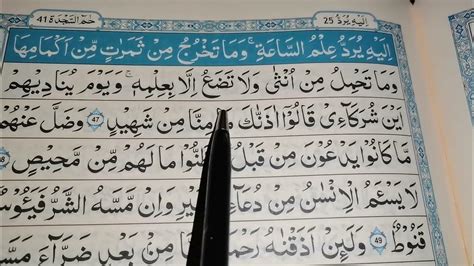 اِلَيْهِ يُرَدُّ 25
حٰمٓ السَّجْدَة 41
اِلَيْهِ يُرَدُّ عِلْمُ السَّاعَةِ ؕ وَمَا تَخْرُجُ مِنْ ثَمَرٰتٍ مِّنْ اَكْمَامِهَا
وَمَا تَحْمِلُ مِنْ اُنْثٰى وَلَا تَضَعُ اِلَّا بِعِلْمِهٖ ؕ وَيَوْمَ يُنَادِيْهِمْ
اَيْنَ شُرَكَآءِيْ قَالُوْۤا اٰذَنّٰكَ مِنَّا مِنْ شَهِيْدٍ ۟ 47 وَضَلَّ عَنْهُمْ
مَّا كَانُوْا يَدْعُوْنَ مِنْ قَبْلُ مَا لَهُمْ مِّنْ مَّحِيْصٍ
لَا يَسْـَٔمُ الْاِنْسَانُ مِنْ دُعَآءِ وَاِنْ مَّسَّهُ الشَّرُّ فَيَـُٔوْسٌ
قَنُوْطٌ 49 وَلَئِنْ اَذَقْنٰهُ مِنْۢ بَعْدِ ضَرَّآءَ